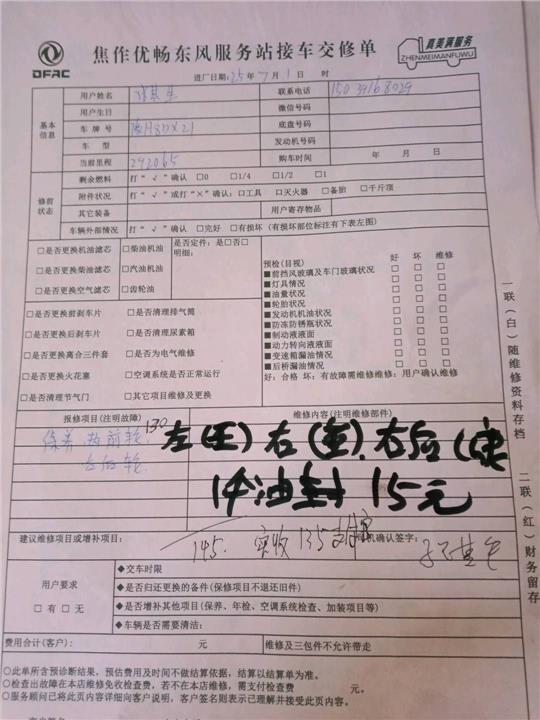 DFAC
焦作优畅东风服务站接车交修单
真美满服务
ZHENMEIMANFUWU
进厂日期:25年7月1日 时
基本信息
用户姓名
联系电话 15039168029
用户生日
微信号码
车牌号
底盘号码
车型
发动机号码
当前里程 292065
购车时间 年 月 日
修前状态
剩余燃油 打“√”确认 □0 □1/4 □1/2 □1
附件状况 打“√”或打“×”确认:□工具 □灭火器 □备胎 □千斤顶
其它装备
用户寄存物品
车辆外部情况 打“√”确认 □完好 □有损坏(有损坏部位标注有下表左图)
□是否更换机油滤芯 □柴油机油
□是否更换柴油滤芯 □汽油机油
□是否更换空气滤芯 □齿轮油
是否定件:是□否□
明细:
□是否更换前刹车片 □是否清理排气筒
□是否更换后刹车片 □是否清理尿素箱
□是否更换离合三件套 □是否为电气维修
□是否更换火花塞 □空调系统是否正常运行
□是否清理节气门 □其它项目维修及更换
预检(目视) 好 坏 维修
■前挡风玻璃及车门玻璃状况 □ □ □
■灯具情况 □ □ □
■油量状况 □ □ □
■轮胎状况 □ □ □
■发动机机油状况 □ □ □
■防冻防锈瓶状况 □ □ □
■制动液液面 □ □ □
■动力转向液液面 □ □ □
■变速箱漏油情况 □ □ □
■后桥漏油情况 □ □ □
好:合格 坏:有故障需维修维修:用户确认维修
一联(白)随维修资料存档
二联(红)财务留存
报修项目(注明故障)
维修内容(注明维修部件)
保养 两前轮 130
右后轮
左(王)右(董).右后(康
1个油封 15元
建议维修项目或增补项目:
145. 实收135支付宝
司机确认签字:
用户要求
□有 □无
◆交车时限
◆是否归还更换的备件(保修项目不退还旧件)
◆是否增补其他项目(保养、年检、空调系统检查、加装项目等)
◆车辆是否需要清洁:
费用合计(客户): 元
维修及三包件不允许带走
○此单所含预诊断结果,预估费用及时间不做结算依据,结算以结算单为准。
○检查出故障在本店维修免收检查费,若不在本店维修,需支付检查费 元。
○服务顾问已将此页内容详细向客户说明,客户签名则表示已理解并接受此页内容。